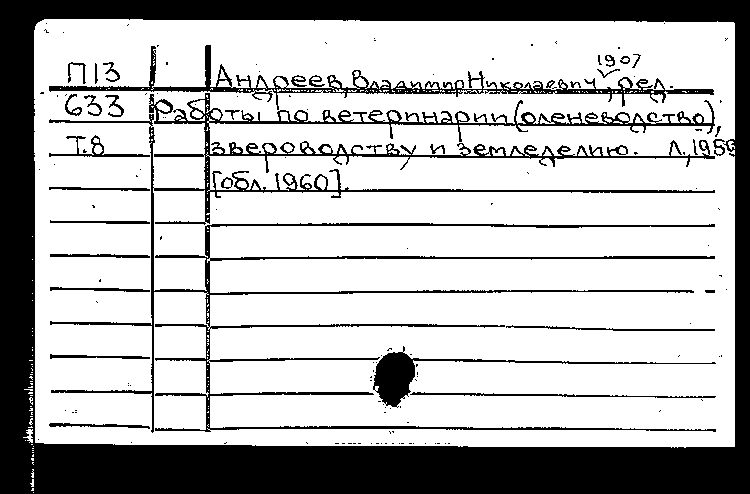 1907
П13 Андреев, Владимир Николаевич, ред.
633 Работы по ветеринарии (оленеводство),
Т.8 звероводству и земледелию. Л., 1959
[обл. 1960].